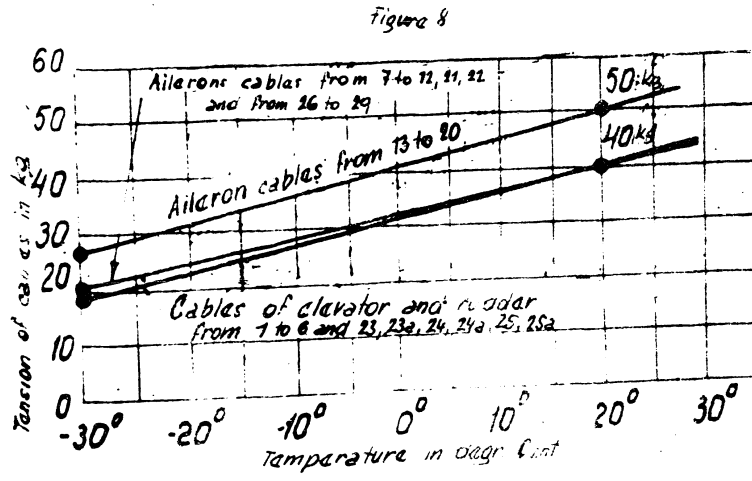 Figure 8
60
50
40
30
20
10
0
Tension of cables in kg
Ailerons cables from 7 to 12, 21, 22
and from 26 to 29
50 kg
40 kg
Aileron cables from 13 to 20
Cables of elevator and rudder
from 1 to 6 and 23, 23a, 24, 24a, 25, 25a
-30° -20° -10° 0° 10° 20° 30°
Temperature in degr Cent